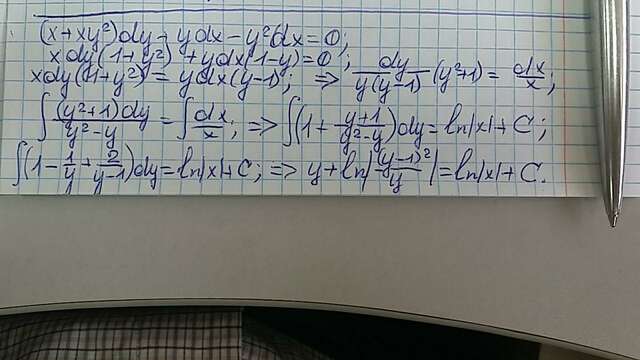 (x+xy²)dy+ydx-y²dx=0;
xdy(1+y²)+ydx(1-y)=0;
xdy(1+y²)=ydx(y-1); ⇒ dy/y(y-1) (y²+1)=dx/x;
∫(y²+1)dy/y²-y=∫dx/x; ⇒ ∫(1+y+1/y²-y)dy=ln|x|+C;
∫(1-1/y+2/y-1)dy=ln|x|+C; ⇒ y+ln|(y-1)²/y|=ln|x|+C.